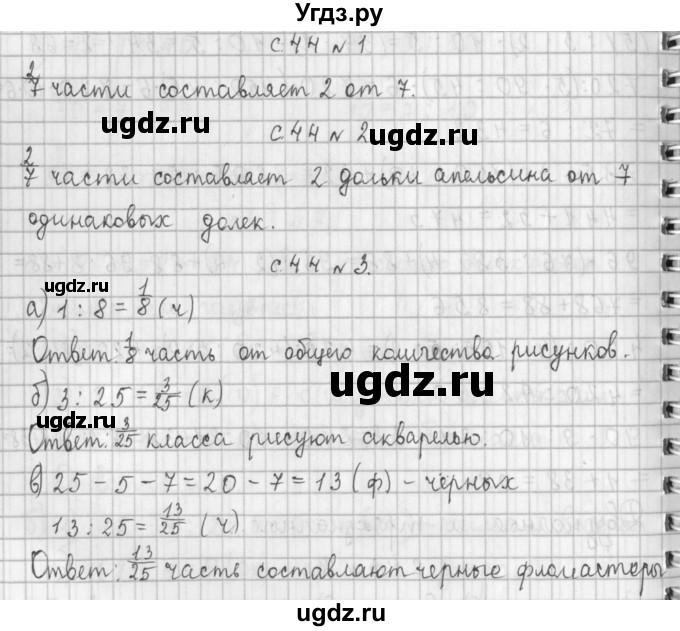 Угдз.ру
с.44 № 1.
2/7 части составляет 2 от 7.
ugdz.ru ugdz.ru
с.44 № 2
2/7 части составляет 2 дольки апельсина от 7
одинаковых долек.
с.44 № 3.
ugdz.ru
а) 1 : 8 = 1/8 (ч)
Ответ: 1/8 часть от общего количества рисунков.
ugdz.ru
б) 3 : 25 = 3/25 (к)
Ответ: 3/25 класса рисуют акварелью.
в) 25 - 5 - 7 = 20 - 7 = 13 (ф) - черных
13 : 25 = 13/25 (ч)
ugdz.ru ugdz.ru
Ответ: 13/25 часть составляют черные фломастеры
ugdz.ru